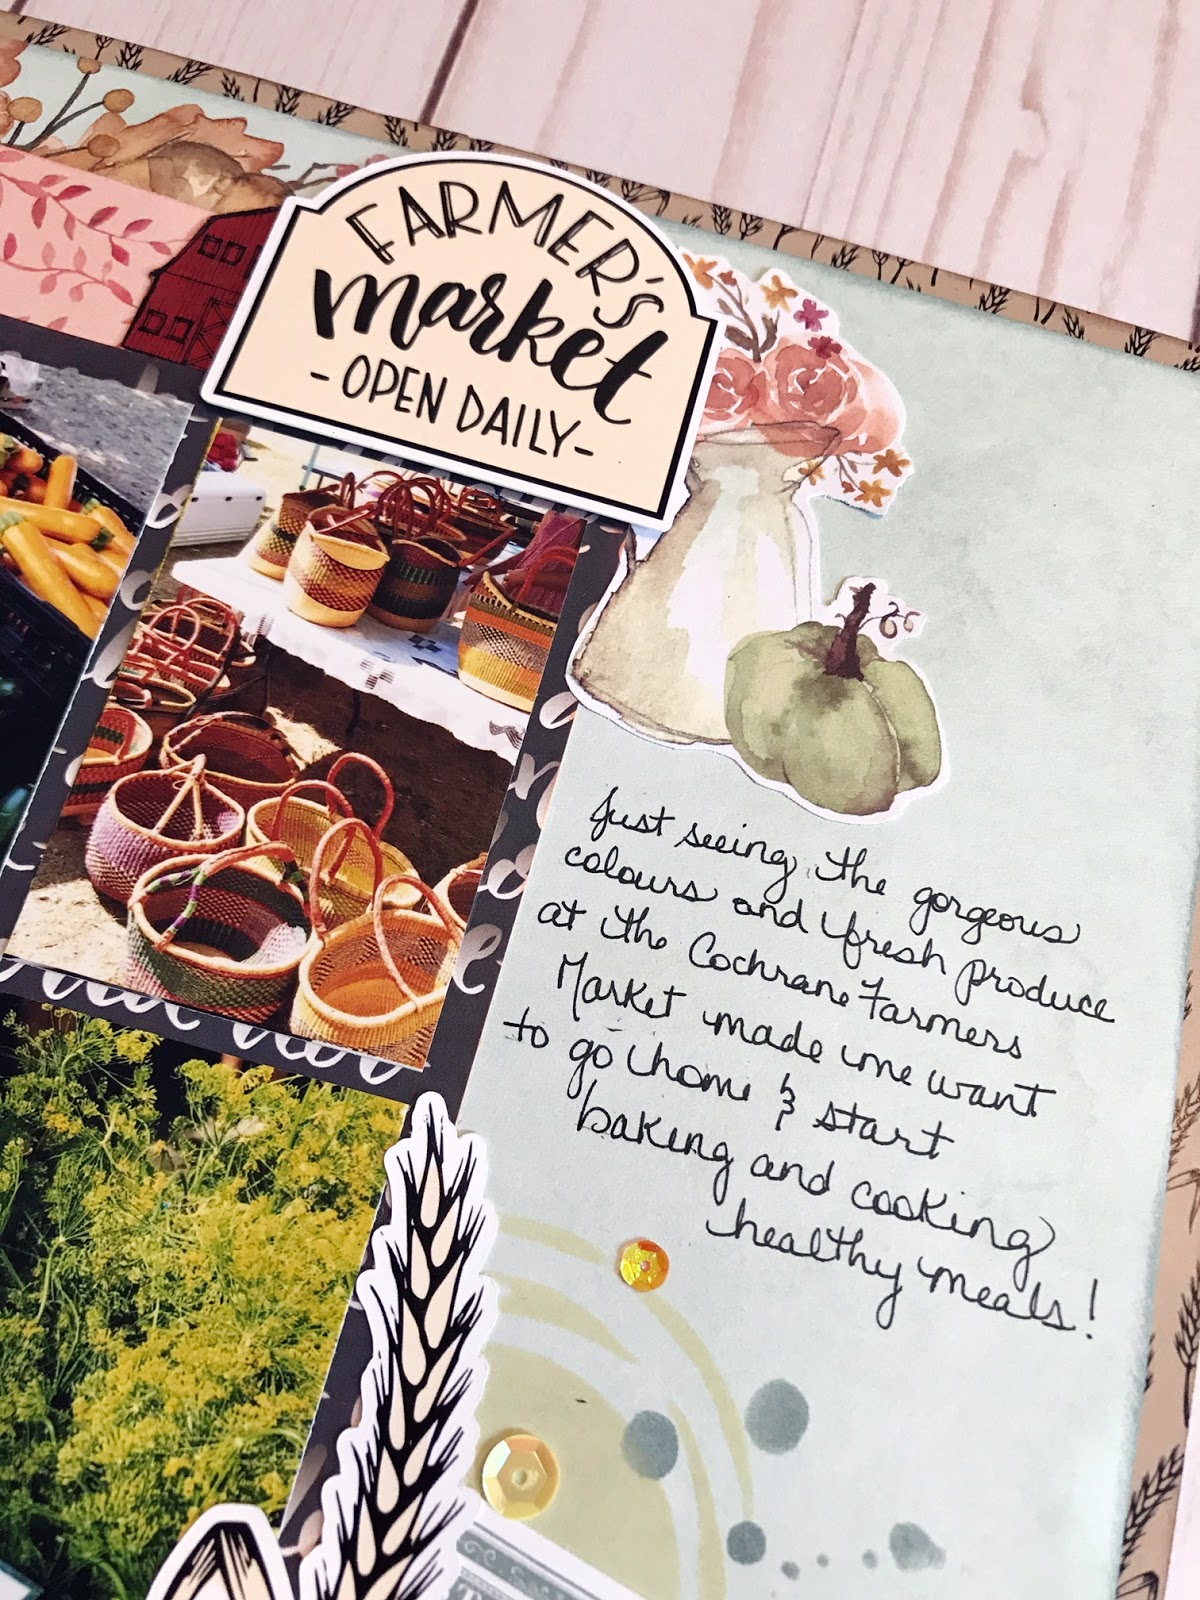 FARMER'S
market
- OPEN DAILY -
Just seeing the gorgeous
colours and fresh produce
at the Cochrane Farmers
Market made me want
to go home & start
baking and cooking
healthy meals!